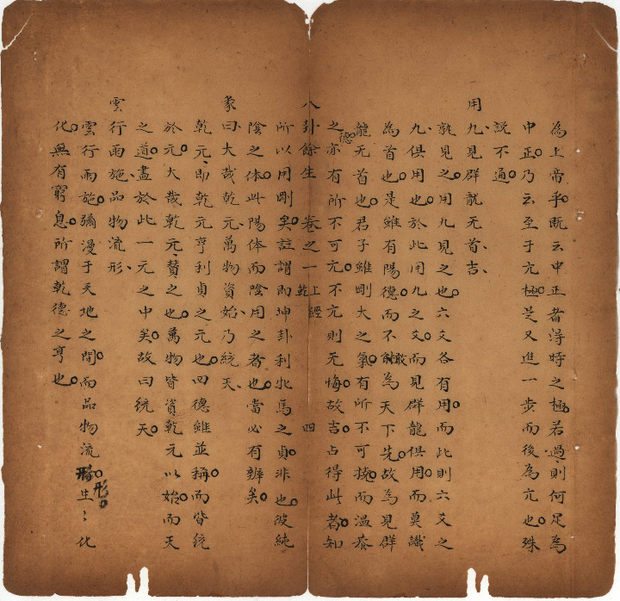 為上帝乎。既云中正者得時之極。若過則何足為
中正。乃云至于亢極。是又進一步而後為亢也。殊
說不通。
用九、見群龍无首、吉、
孰見之。用九見之也。六爻各有用。而此則六爻之
九俱用也。於此用九之爻。而見群龍俱用。而莫識
為首也。是雖有陽德。而不敢為天下先。故為見群
龍无首也。君子雖剛大之氣。有所不可撓。而溫恭
之德亦有所不可亢。不亢則无悔。故吉。占得此者。知
八卦餘生 卷之一 上經 乾 四
所以用剛矣。註謂即坤卦利牝馬之貞。非也。彼純
陰之体。此陽体而陰用之者也。當必有辨矣。
彖曰、大哉乾元、萬物資始、乃統天、
乾元、即乾元亨利貞之元也。四德雖並稱。而皆統
於元。大哉乾元、贊之也。萬物皆資乾元以始。而天
之道盡於此一元之中矣。故曰統天。
雲行雨施、品物流形、
雲行雨施。瀰漫于天地之間。而品物流形。生〻化
化。無有窮息。所謂乾德之亨也。